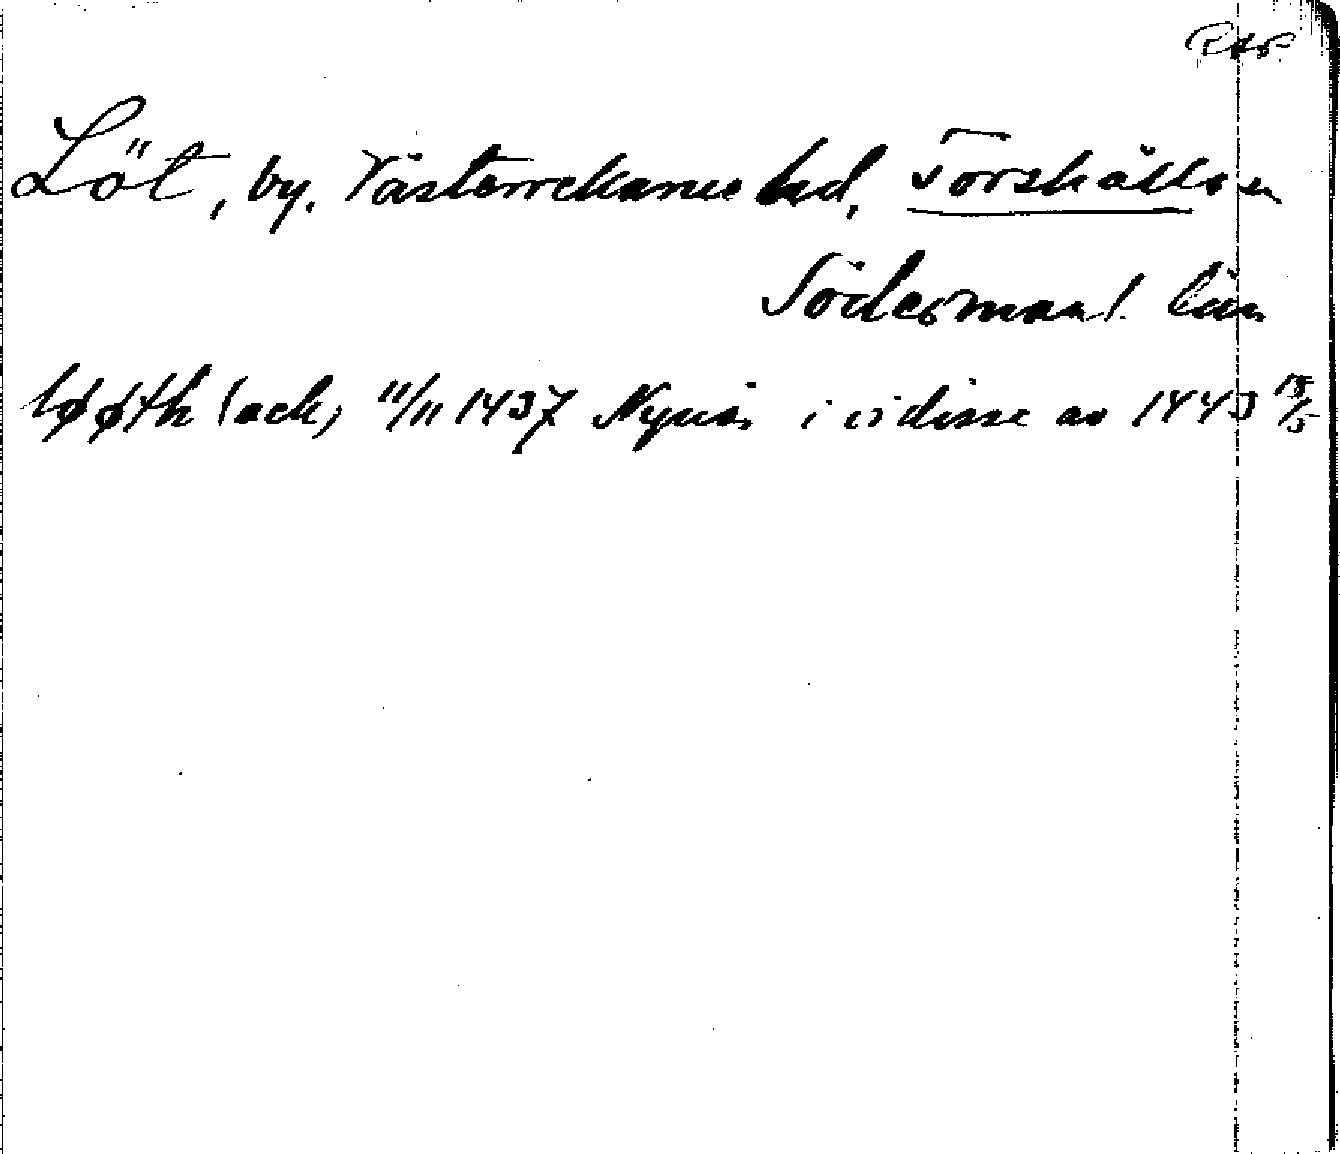 RAP
Löt, by. Västerrekarne hd, Torshälla sn
Södermanl. län
løøth (ack) 11/11 1437 Nynäs i vidisse av 1443 18/5